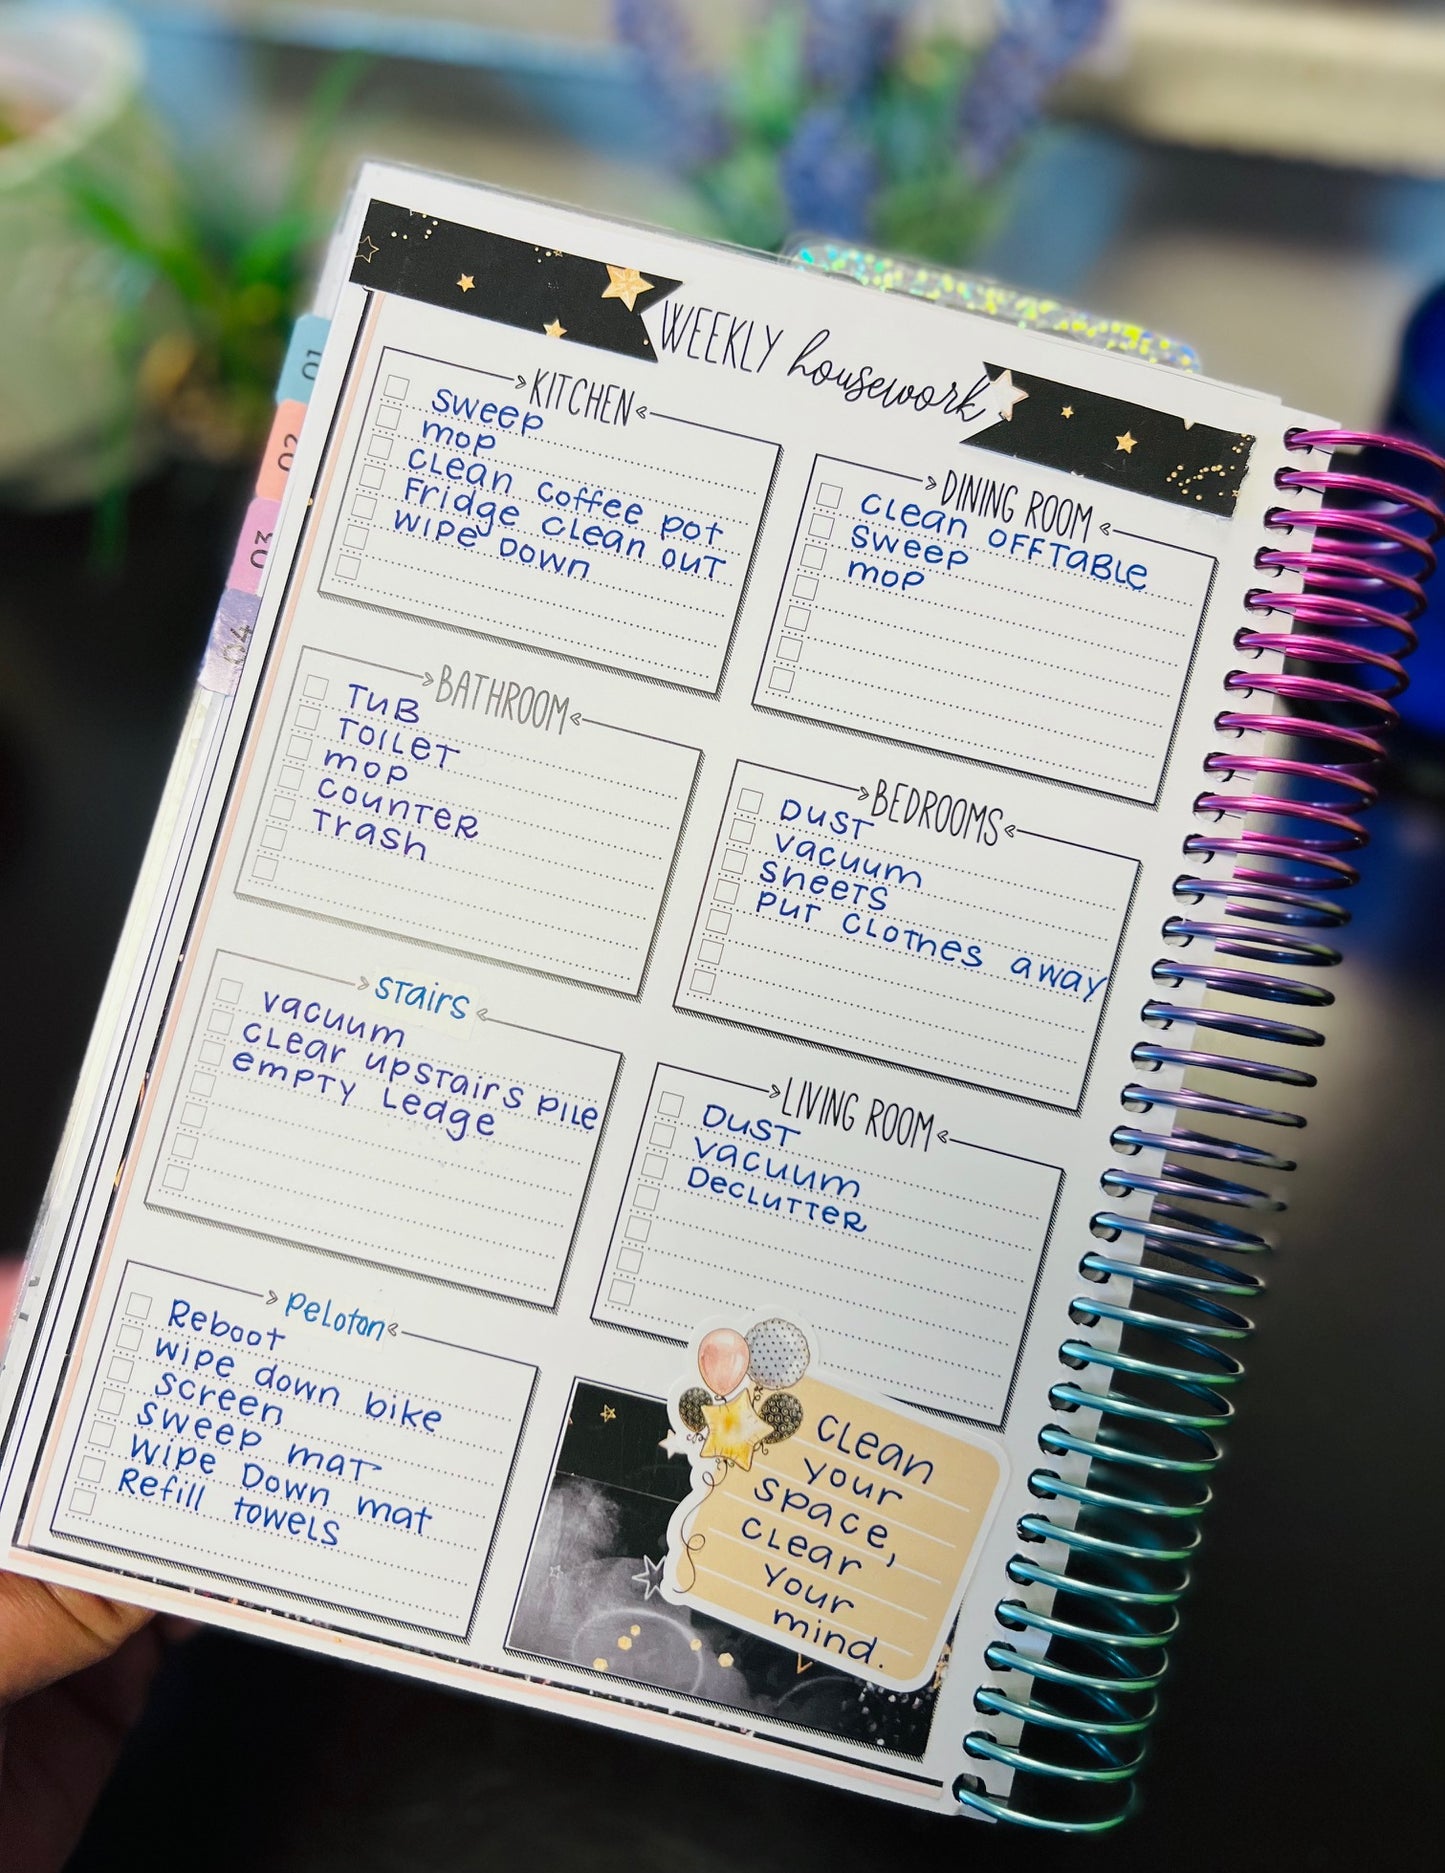 WEEKLY housework
KITCHEN
sweep
mop
clean coffee pot
Fridge clean out
wipe down
DINING ROOM
clean off table
sweep
mop
BATHROOM
Tub
Toilet
mop
counter
Trash
BEDROOMS
Dust
vacuum
sheets
put clothes away
stairs
vacuum
clear upstairs pile
empty ledge
LIVING ROOM
Dust
vacuum
Declutter
peloton
Reboot
wipe down bike
screen
sweep mat
wipe down mat
Refill towels
clean
your
space,
clear
your
mind.
01
02
03
04